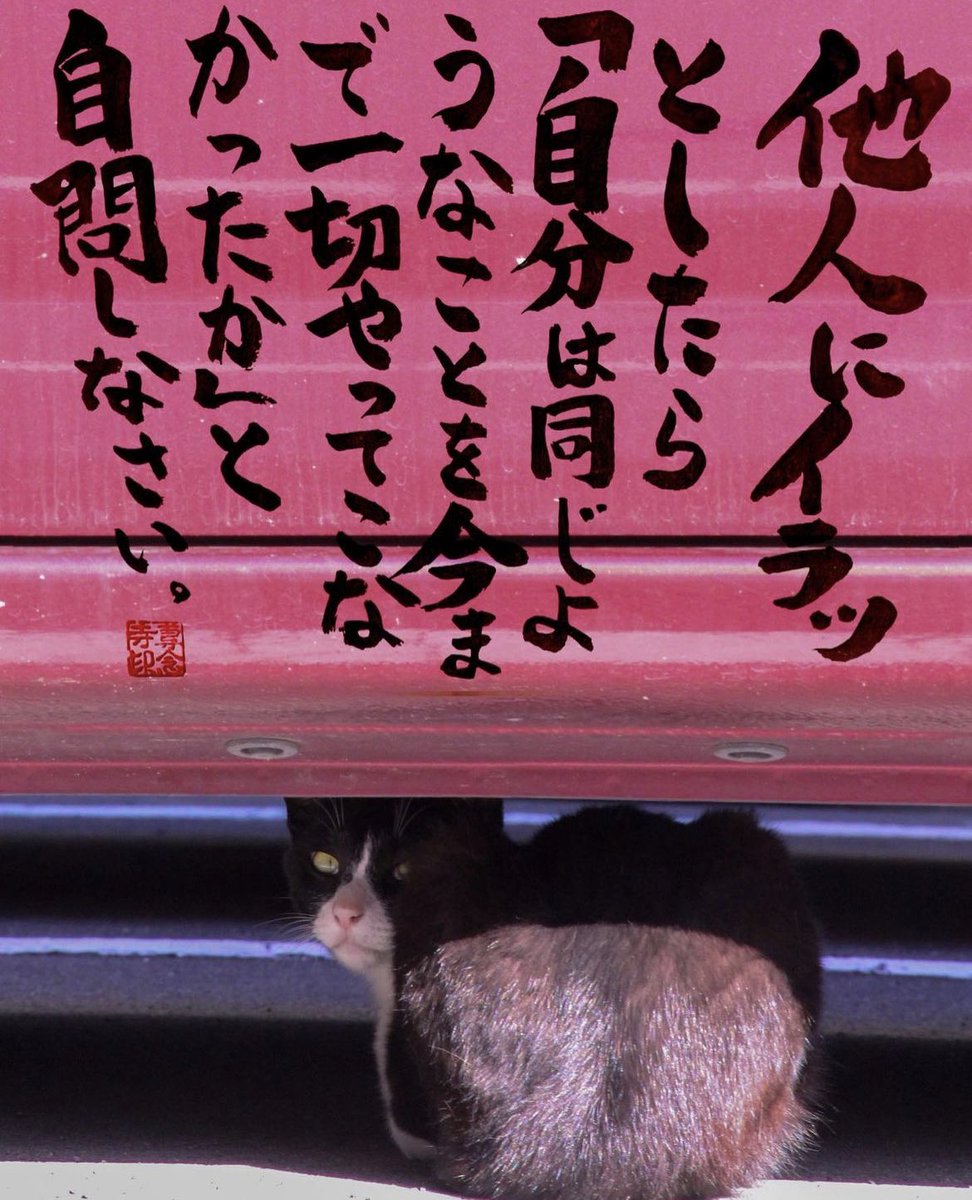 他人にイラッ
としたら
「自分は同じよ
うなことを今ま
で一切やってこな
かったか」と
自問しなさい。